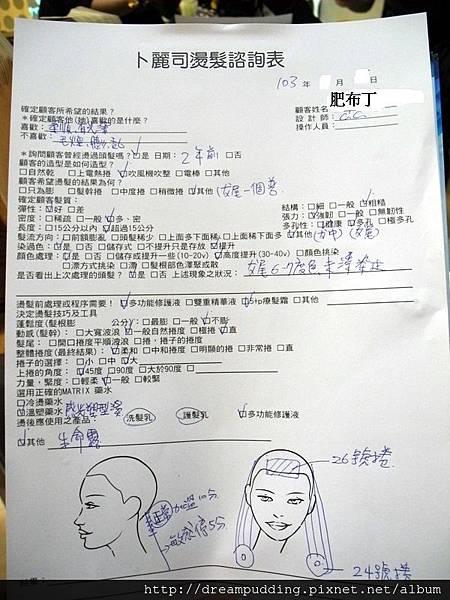 卜麗司燙髮諮詢表
103 年 月 日
顧客姓名 肥布丁
設計師: C.C.
操作人員:
確定顧客所希望的結果?
＊確定顧客他(她)喜歡的是什麼?
喜歡:
不喜歡: 毛燥,
＊詢問顧客曾經燙過頭髮嗎? ☑是 日期: 2年前 □否
顧客的造型是如何造型?
□自然乾 □上電熱捲 ☑吹風機吹整 □電棒 □其他
顧客希望燙髮的結果為何?
□只為膨 □髮幹捲 □中度捲 □稍微捲 ☑其他 (髮尾一個彎)
確定顧客髮質:
彈性: ☑好 □差
密度: □稀疏 □一般 ☑多、密
長度: □15公分以內 ☑超過15公分
結構: □細 □一般 ☑粗糙
張力: ☑強韌 □一般 □無韌性
多孔性: □健康 ☑多孔 □極多孔
髮流方向: □前額膨亂 □頭髮稀少 □上面多下面稀 □上面稀下面多 ☑其他 (分中) (髮尾)
染過色: ☑是 □否 □染色式 □不提升只是存放 ☑提升
顏色處理: ☑是 □否 □儲存或提升一些(10-20v) ☑高度提升(30-40v) □顏色挑染
□漂方式挑染 □漂 □髮根部色澤褪或散
是否看出上次處理的頭髮? ☑是 □否 上述現象之狀況: 髮尾6-7度色
燙髮前處理或程序需要! ☑多功能修護液 □雙重精華液 ☑5+p療髮霜 □其他
決定燙髮技巧及工具
蓬鬆度(髮根膨 公分): □最膨 □一般 ☑不膨
動感(髮幹): □大寬波浪 □一般自然捲度 □極捲 ☑直
髮尾: □開口捲度平順波浪 □捲,捲子的捲度
整體捲度(最終結果): ☑柔和 □中和捲度 □明顯的捲 □非常捲 □直
捲子的選擇: □小 □中 ☑大
上捲的角度: ☑45度 □90度 □大於90度
力量,緊度: □輕柔 ☑一般 □較緊
選用正確的MATRIX 藥水
□冷燙藥水
☑溫塑藥水
燙後應使用之產品: 洗髮乳 護髮乳 ☑多功能修護液
☑其他 生命露
加溫10分
停5分
26號捲
24號捲
http://dreampudding.pixnet.net/album